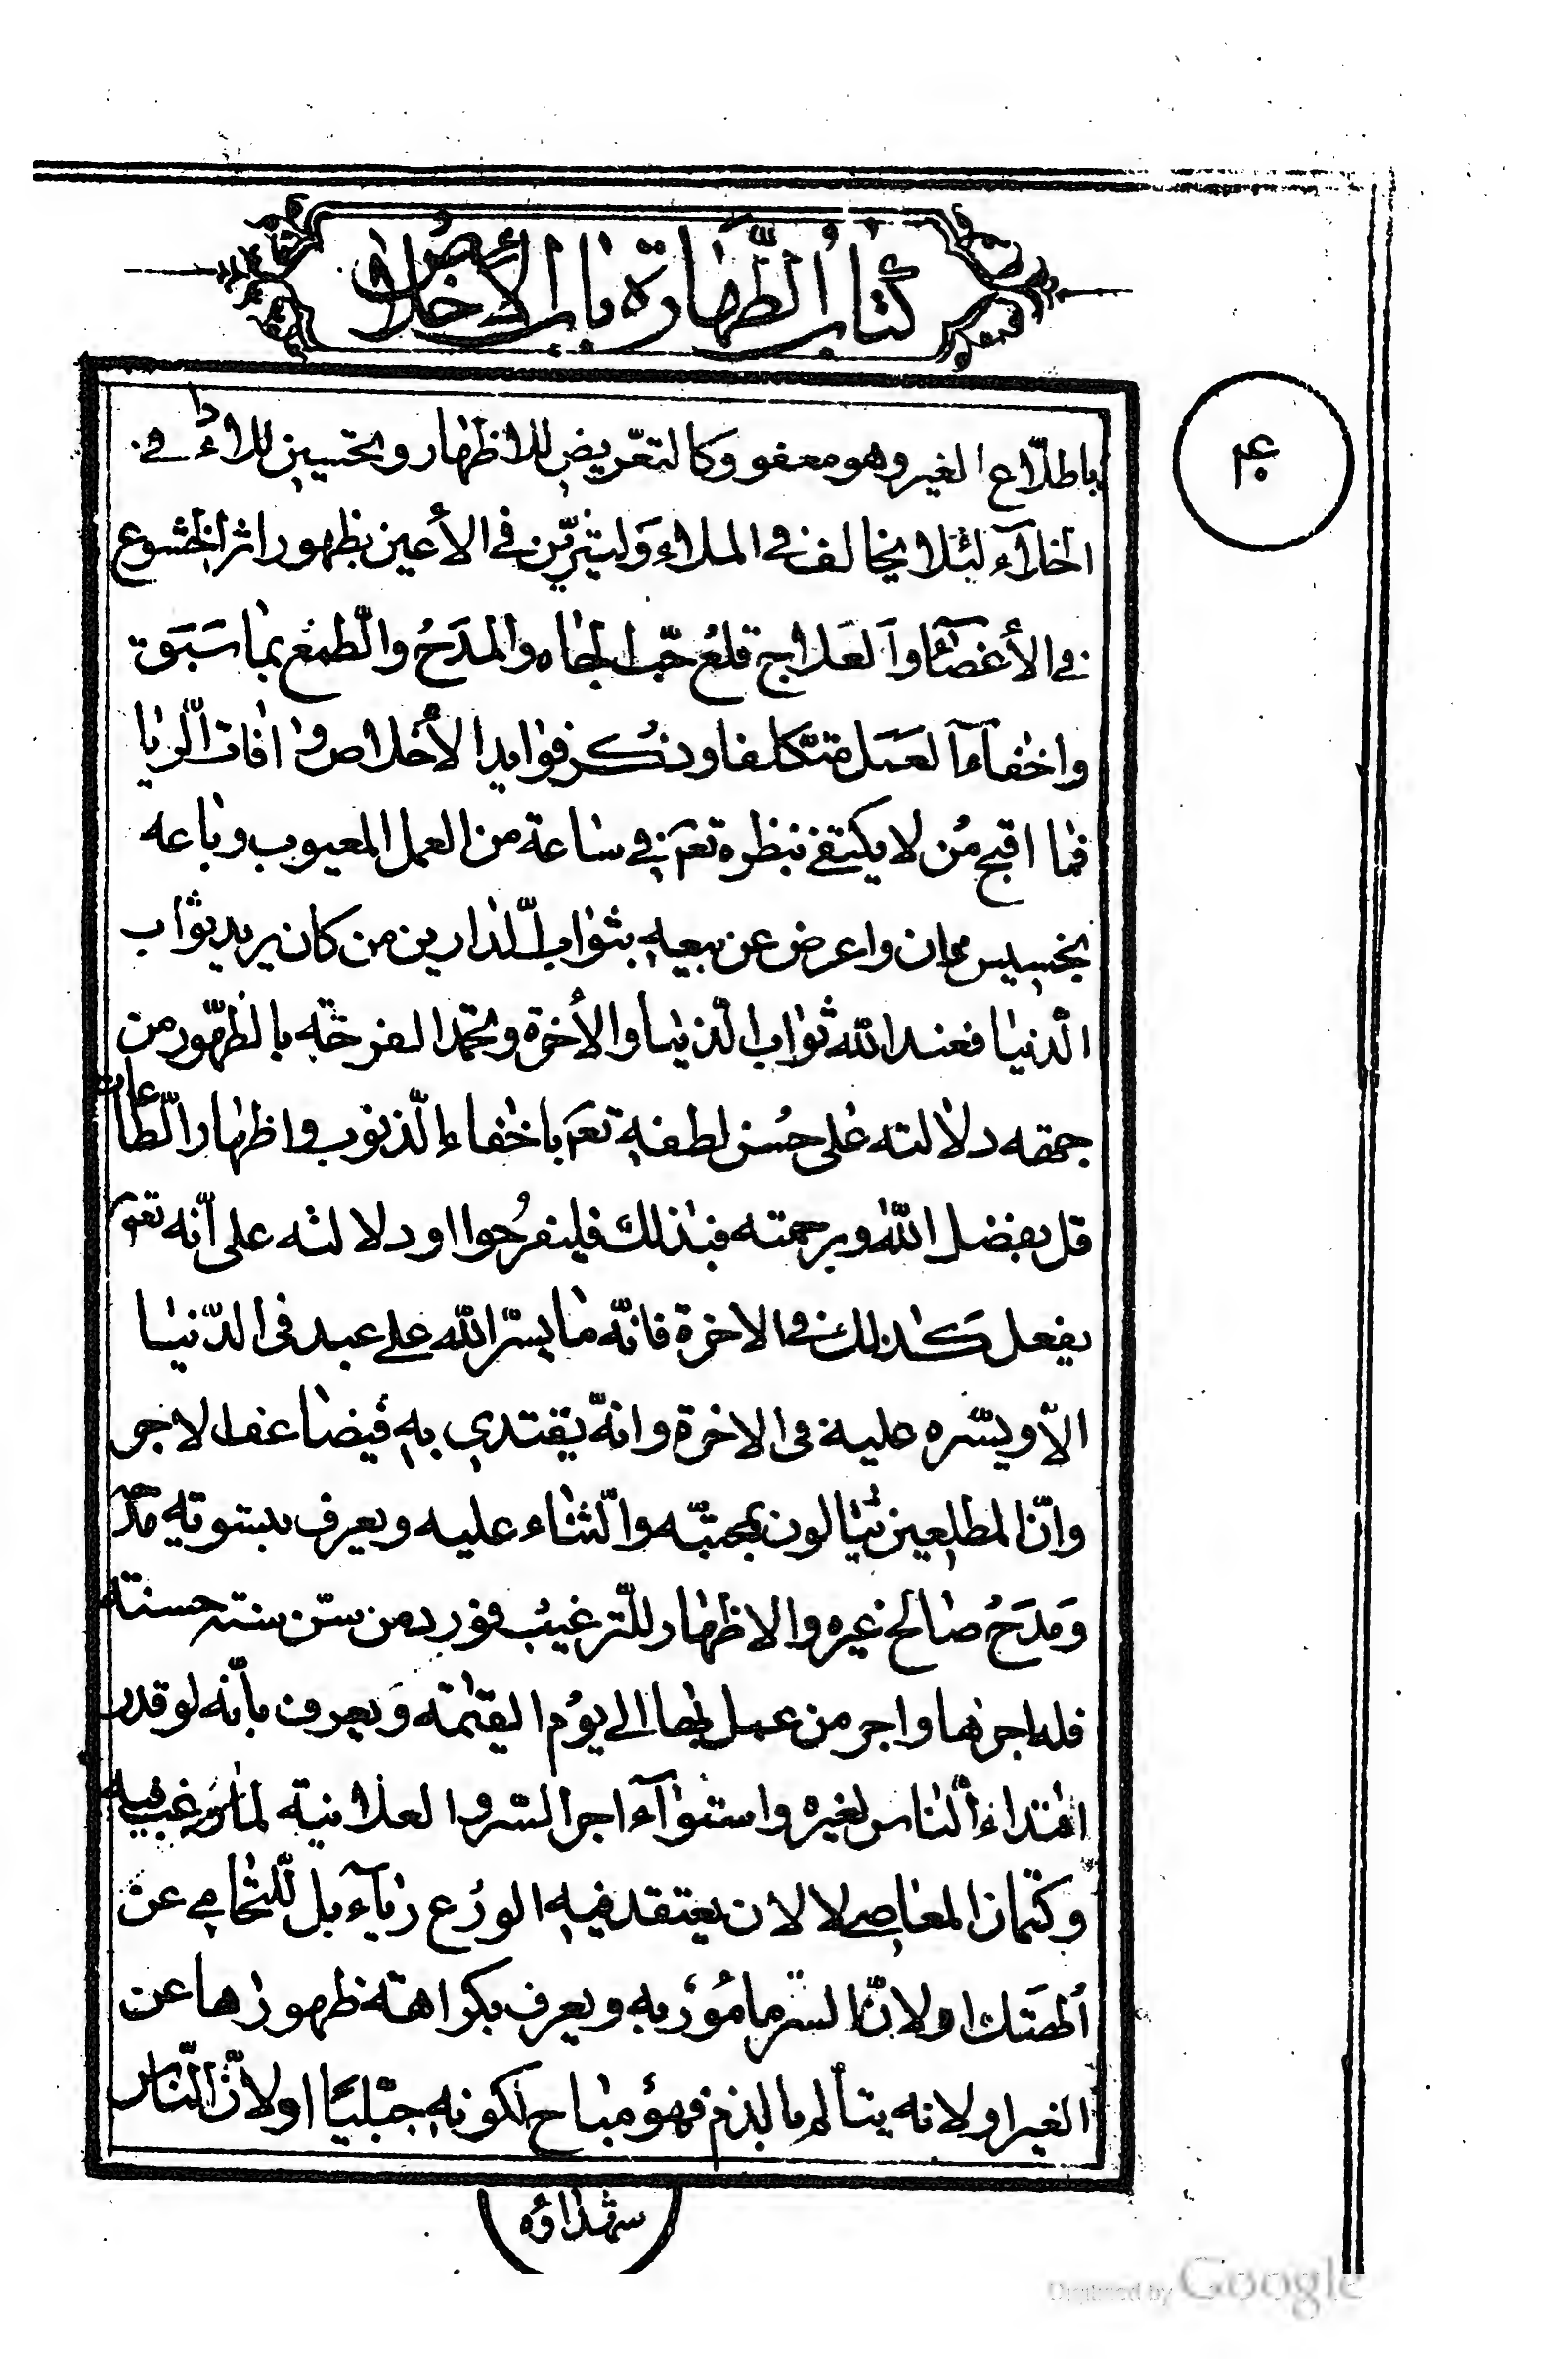 كتاب الطهارة باب الأخلاص
باطلاع الغير وهو معفو وكالتعريض للاظهار وتحسين للاداء في
الخلاء لئلا يخالف في الملاء وليتزين في الأعين بظهور اثر الخشوع
في الأعضاء والعلاج قلع حب الجاه والمدح والطمع بما سبق
واخفاء العمل متكلفا وذكر فوايد الأخلاص وافات الريا
فما اقبح من لا يكتفي بنظره تعم في ساعة من العمل المعيوب وباعه
بخسيس مجان واعرض عن بيعه بثواب الدارين من كان يريد ثواب
الدنيا فعند الله ثواب الدنيا والأخرة ويحمد الفرحة بالظهور من
جهة دلالته على حسن لطفه تعم باخفاء الذنوب واظهار الطاعات
قل بفضل الله وبرحمته فبذلك فليفرحوا او دلالته على أنه تعم
يفعل كذلك في الاخرة فانه ما يستر الله على عبد في الدنيا
الا ويستره عليه في الاخرة وانه يقتدي به فيضاعف الاجر
وان المطلعين ينالون بمحبته والثناء عليه ويعرف بتسوية مدحه
ومدح صالح غيره والاظهار للترغيب فورد من سن سنة حسنة
فله اجرها واجر من عمل بها الى يوم القيمة ويعرف بأنه لو قدر
اقتداء الناس لغيره واستواء اجر السر والعلانية لما رغب فيه
وكتمان المعاصي لا لان يعتقد فيه الورع رياء بل للتحامي عن
الهتك او لان الستر مامور به ويعرف بكراهة ظهورها عن
الغير او لانه يتألم بالذم فهو مباح لكونه جبليا او لأن الناس
شهداؤه
Digitized by Google